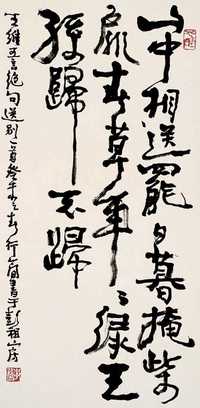 山中相送罷日暮掩柴
扉春草年〻綠王
孫歸不歸
王維五言絕句送別一首春行書于彭祖山房